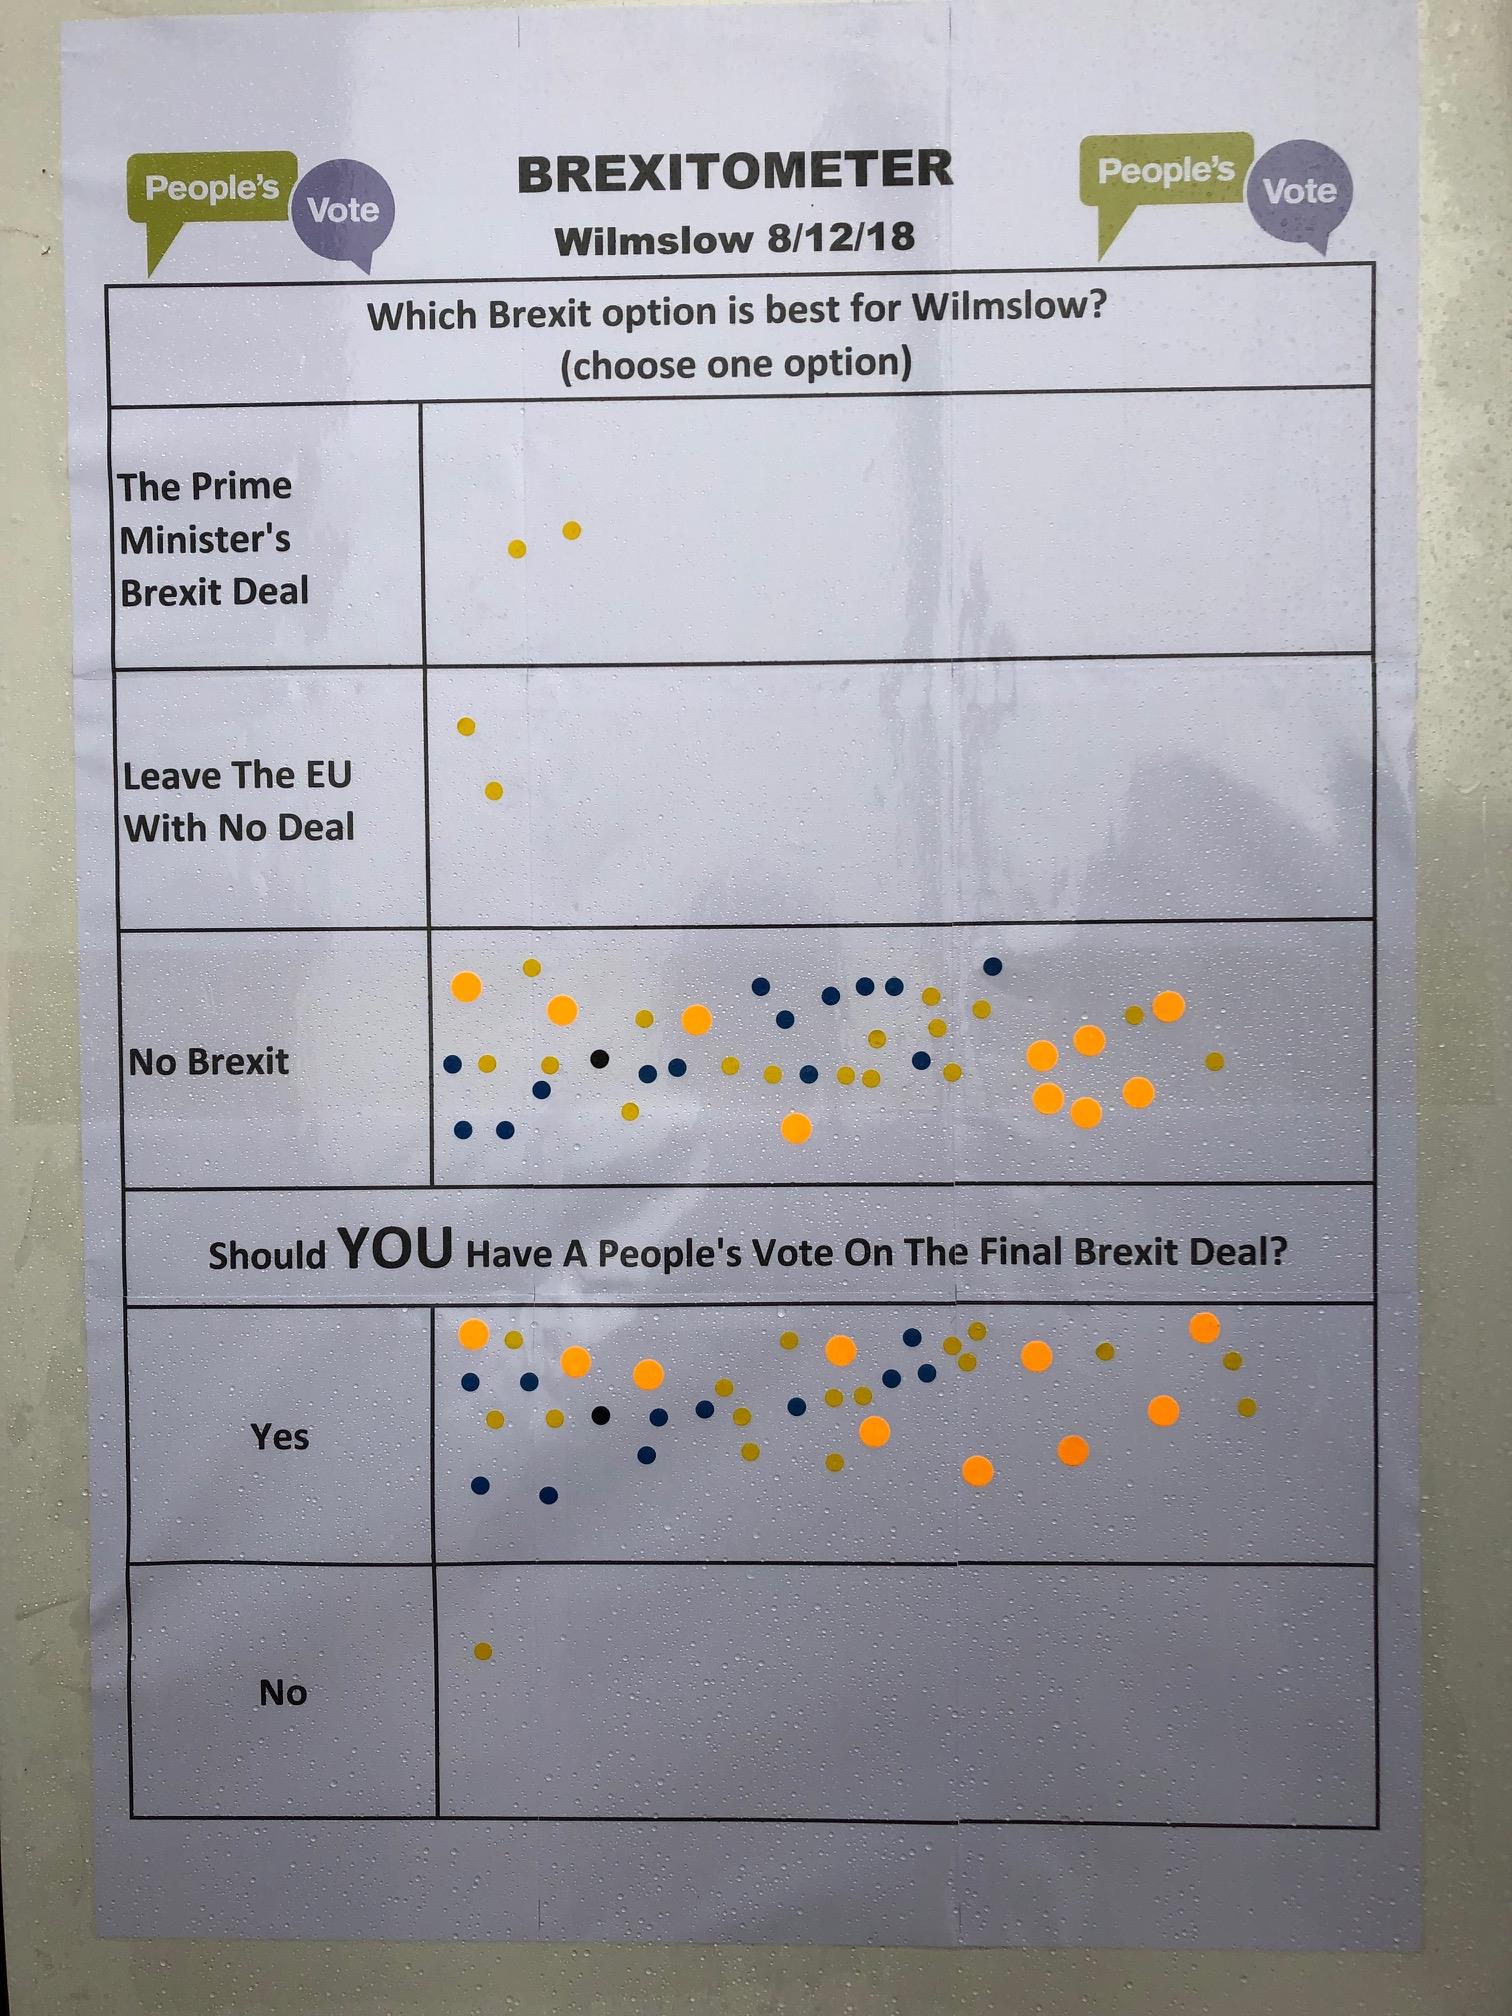 People's Vote
BREXITOMETER
People's Vote
Wilmslow 8/12/18
Which Brexit option is best for Wilmslow?
(choose one option)
The Prime
Minister's
Brexit Deal
Leave The EU
With No Deal
No Brexit
Should YOU Have A People's Vote On The Final Brexit Deal?
Yes
No